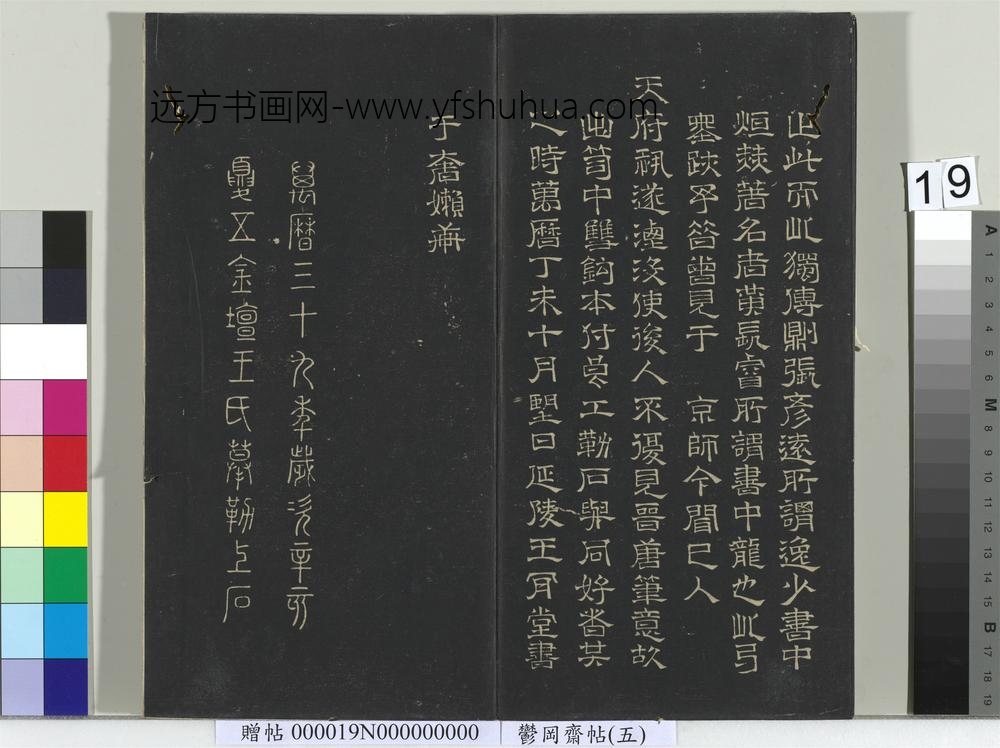 止此而此獨傳則張彥遠所謂逸少書中
烜赫著名者黃長睿所謂書中龍也此弓
墨跡予嘗見于 京師今聞已入
天府祕遂湮沒使後人不復見晉唐筆意故
出笥中雙鉤本付良工勒石與同好者共
之時萬曆丁未十月望日延陵王肯堂書
于 嬾菴
萬曆三十九年歲次辛亥
夏五金壇王氏摹勒上石
远方书画网-www.yfshuhua.com
19
A 1 2 3 4 5 6 M 8 9 10 11 12 13 14 15 B 17 18 19
贈帖 000019N000000000
鬱岡齋帖(五)